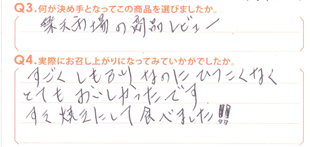 Q3.何が決め手となってこの商品を選びましたか。
楽天市場の商品レビュー
Q4.実際にお召し上がりになってみていかがでしたか。
すごくしもふりなのにひつこくなく
とてもおいしかったです
すき焼きにして食べました!!